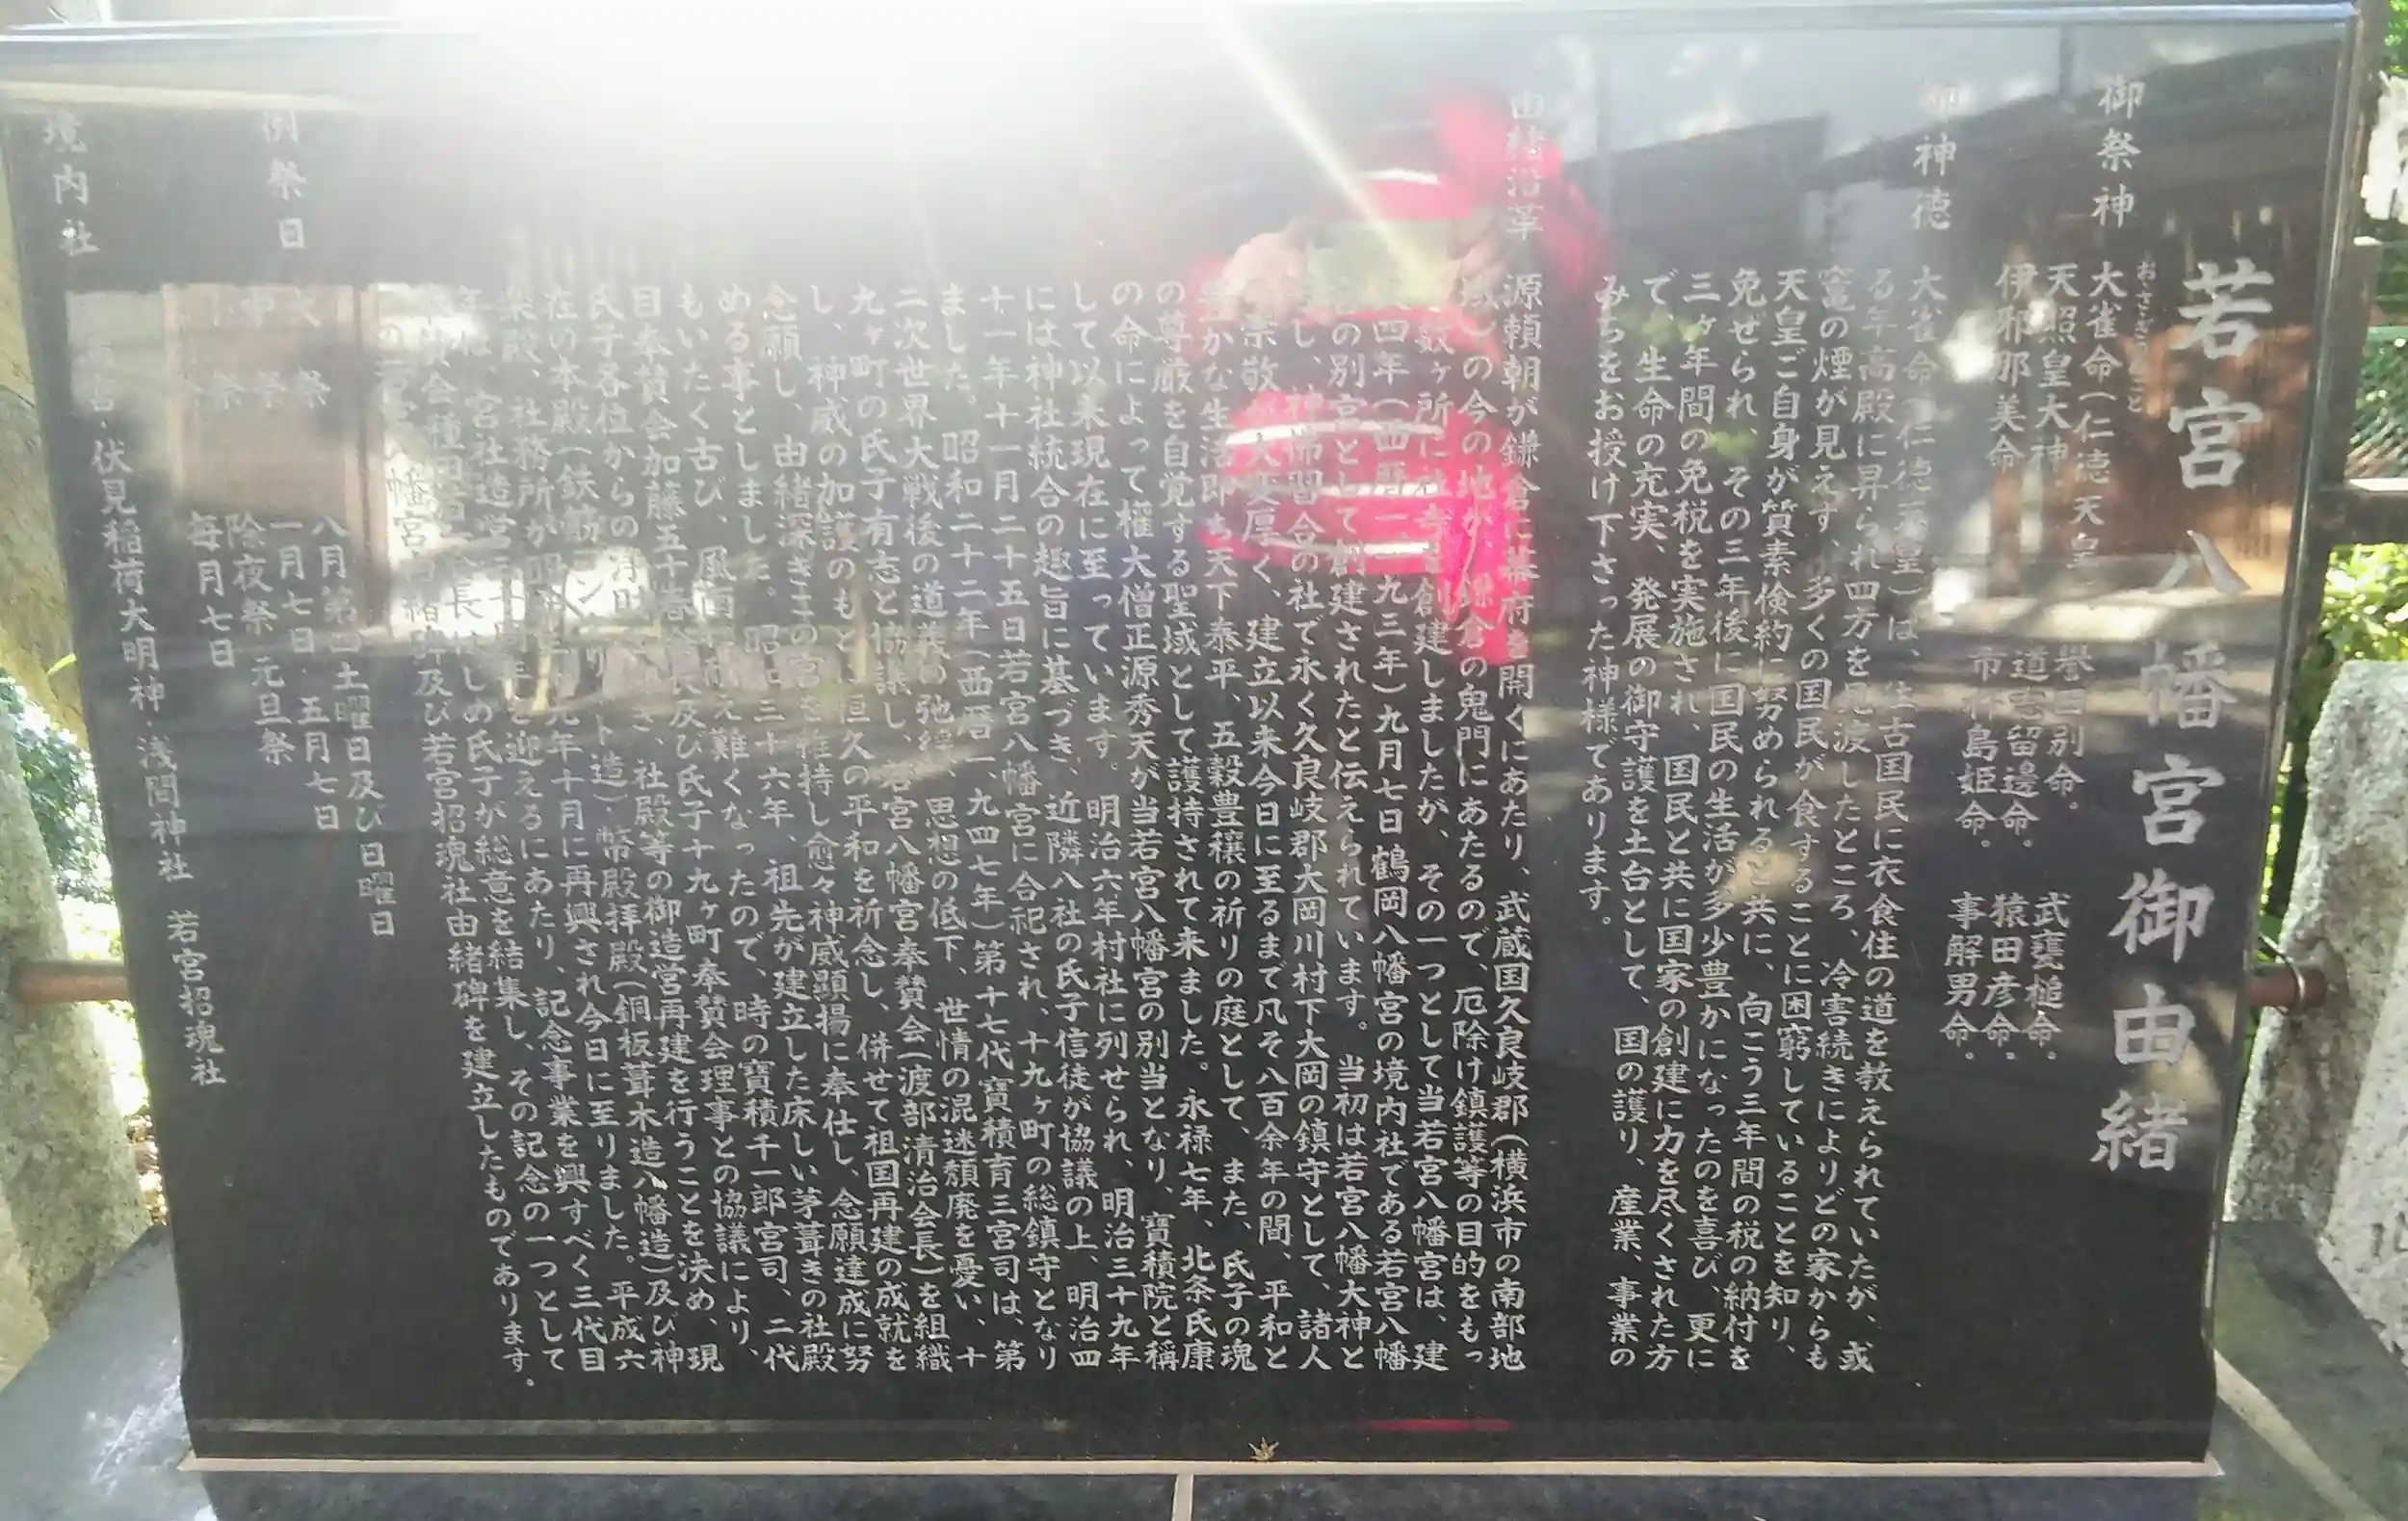 若宮八幡宮御由緒
御祭神
おさざきのみこと
大雀命(仁徳天皇)
天照皇大神
伊邪那美命
誉田別命。
道志留邊命。
市杵島姫命。
武甕槌命。
猿田彦命。
事解男命。
御神徳
大雀命(仁徳天皇)は、往古国民に衣食住の道を教えられていたが、或
る年高殿に昇られ四方を見渡したところ、冷害続きによりどの家からも
竈の煙が見えず、多くの国民が食することに困窮していることを知り、
天皇ご自身が質素倹約に努められると共に、向こう三年間の税の納付を
免ぜられ、その三年後に国民の生活が多少豊かになったのを喜び、更に
三ヶ年間の免税を実施され、国民と共に国家の創建に力を尽くされた方
で、生命の充実、発展の御守護を土台として、国の護り、産業、事業の
みちをお授け下さった神様であります。
由緒沿革
源頼朝が鎌倉に幕府を開くにあたり、武蔵国久良岐郡(横浜市の南部地
域)の今の地が、鎌倉の鬼門にあたるので、厄除け鎮護等の目的をもっ
数ヶ所に社寺を創建しましたが、その一つとして当若宮八幡宮は、建
四年(西暦一一九三年)九月七日鶴岡八幡宮の境内社である若宮八幡
の別宮として創建されたと伝えられています。当初は若宮八幡大神と
し、神佛習合の社で永く久良岐郡大岡川村下大岡の鎮守として、諸人
崇敬が大変厚く、建立以来今日に至るまで凡そ八百余年の間、平和と
豊かな生活即ち天下泰平、五穀豊穣の祈りの庭として、また、氏子の魂
の尊厳を自覚する聖域として護持されて来ました。永禄七年、北条氏康
の命によって權大僧正源秀天が当若宮八幡宮の別当となり、寶積院と稱
して以来現在に至っています。明治六年村社に列せられ、明治三十九年
には神社統合の趣旨に基づき、近隣八社の氏子信徒が協議の上、明治四
十一年十一月二十五日若宮八幡宮に合祀され、十九ヶ町の総鎮守となり
ました。昭和二十二年(西暦一、九四七年)第十七代寶積育三宮司は、第
二次世界大戦後の道義の弛緩、思想の低下、世情の混迷頽廃を憂い、十
九ヶ町の氏子有志と協議し、若宮八幡宮奉賛会(渡部清治会長)を組織
し、神威の加護のもと、恒久の平和を祈念し、併せて祖国再建の成就を
念願し、由緒深きこの宮を維持し愈々神威顕揚に奉仕し、念願達成に努
める事としました。昭和三十六年、祖先が建立した床しい茅葺きの社殿
もいたく古び、風雨に耐え難くなったので、時の寶積千一郎宮司、二代
目奉賛会加藤五十春会長及び氏子十九ヶ町奉賛会理事との協議により、
氏子各位からの 社殿等の御造営再建を行うことを決め、現
在の本殿(鉄筋コンクリート造)、幣殿拝殿(銅板葺木造八幡造)及び神
楽殿、社務所が 年十月に再興され今日に至りました。平成六
年は、宮社造営 を迎えるにあたり、記念事業を興すべく三代目
奉賛会種田 会長はじめ氏子が総意を結集し、その記念の一つとして
この若宮八幡宮由緒碑及び若宮招魂社由緒碑を建立したものであります。
例祭日
大祭 八月第四土曜日及び日曜日
中祭 一月七日・五月七日
祭 除夜祭・元旦祭
祭 毎月七日
境内社
伏見稲荷大明神・浅間神社 若宮招魂社